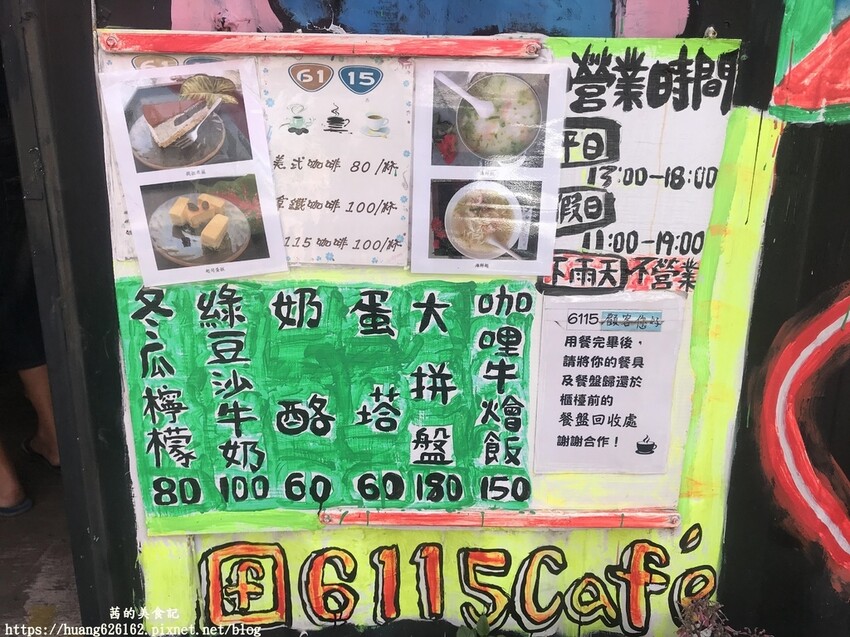 61 15
美式咖啡 80/杯
咖啡 100/杯
115 咖啡 100/杯
營業時間
平日
13:00-18:00
假日
11:00-19:00
下雨天 不營業
冬瓜檸檬 80
綠豆沙牛奶 100
奶酪 60
蛋塔 60
大拼盤 180
咖哩牛燴飯 150
6115 顧客您好
用餐完畢後，
請將你的餐具
及餐盤歸還於
櫃檯前的
餐盤回收處
謝謝合作！
6115Café
茜的美食記
https://huang626162.pixnet.net/blog